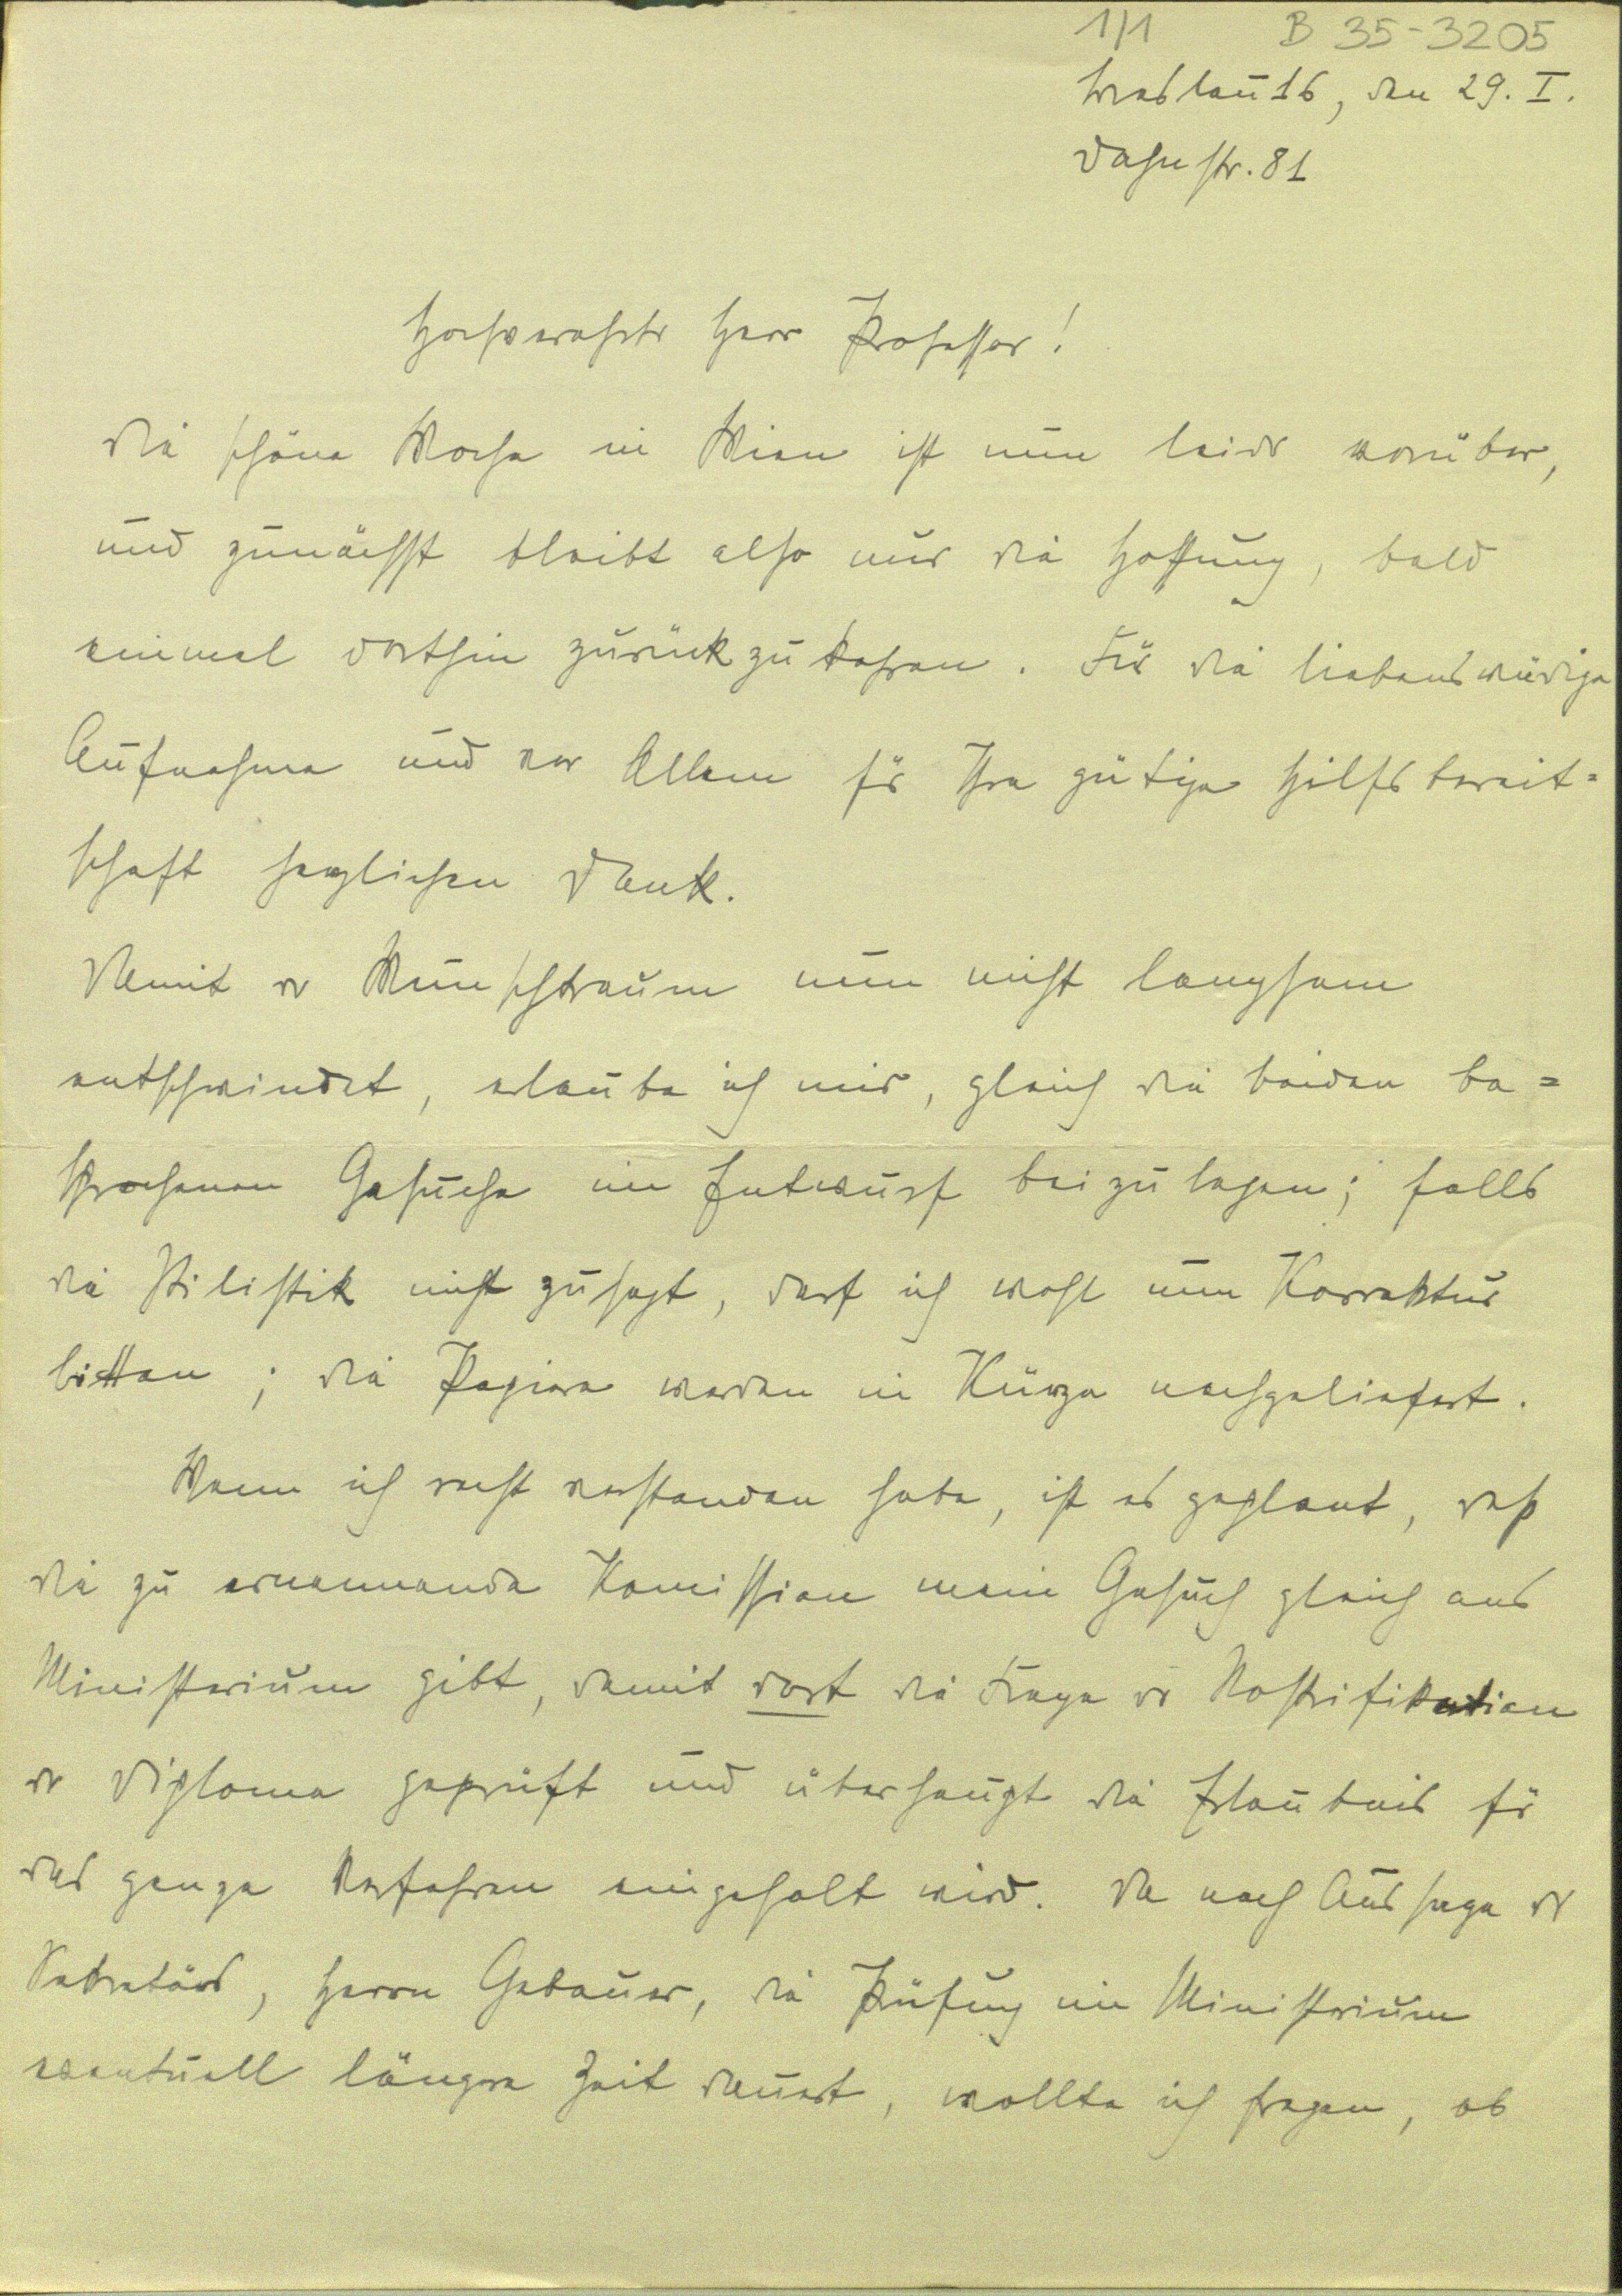 1/1 B 35-3205
Breslau 16, den 29. I.
Dahnstr. 81
Hochverehrter Herr Professor!
Die schöne Woche in Wien ist nun leider vorüber,
und zunächst bleibt also nur die Hoffnung, bald
einmal dorthin zurückzukehren. Für die liebenswürdige
Aufnahme und vor Allem für Ihre gütige Hilfsbereit=
schaft herzlichen Dank.
Damit der Wunschtraum nun nicht langsam
entschwindet, erlaube ich mir, gleich die beiden be=
sprochenen Gesuche im Entwurf beizulegen; falls
die Stilistik nicht zusagt, darf ich wohl um Korrektur
bitten; die Papiere werden in Kürze nachgeliefert.
Wenn ich recht verstanden habe, ist es geplant, daß
die zu ernennende Komission mein Gesuch gleich ans
Ministerium gibt, damit dort die Frage der Nostrifikation
der Diplome geprüft und überhaupt die Erlaubnis für
das ganze Verfahren eingeholt wird. Da nach Aussage des
Sekretärs, Herrn Gebauer, die Prüfung im Ministerium
eventuell längere Zeit dauert, wollte ich fragen, ob